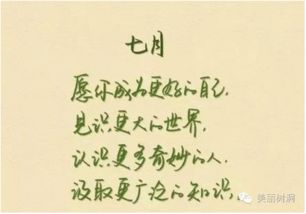 七月
愿你成为更好的自己,
见识更大的世界,
认识更多奇妙的人,
汲取更广泛的知识,
美丽树洞